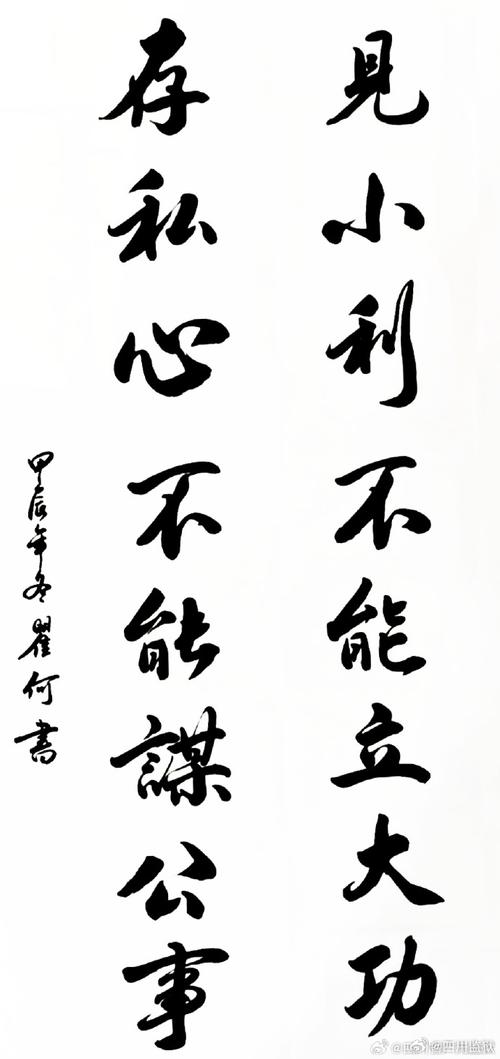 見小利不能立大功
存私心不能謀公事
甲辰年冬瞿何書
@四川监狱